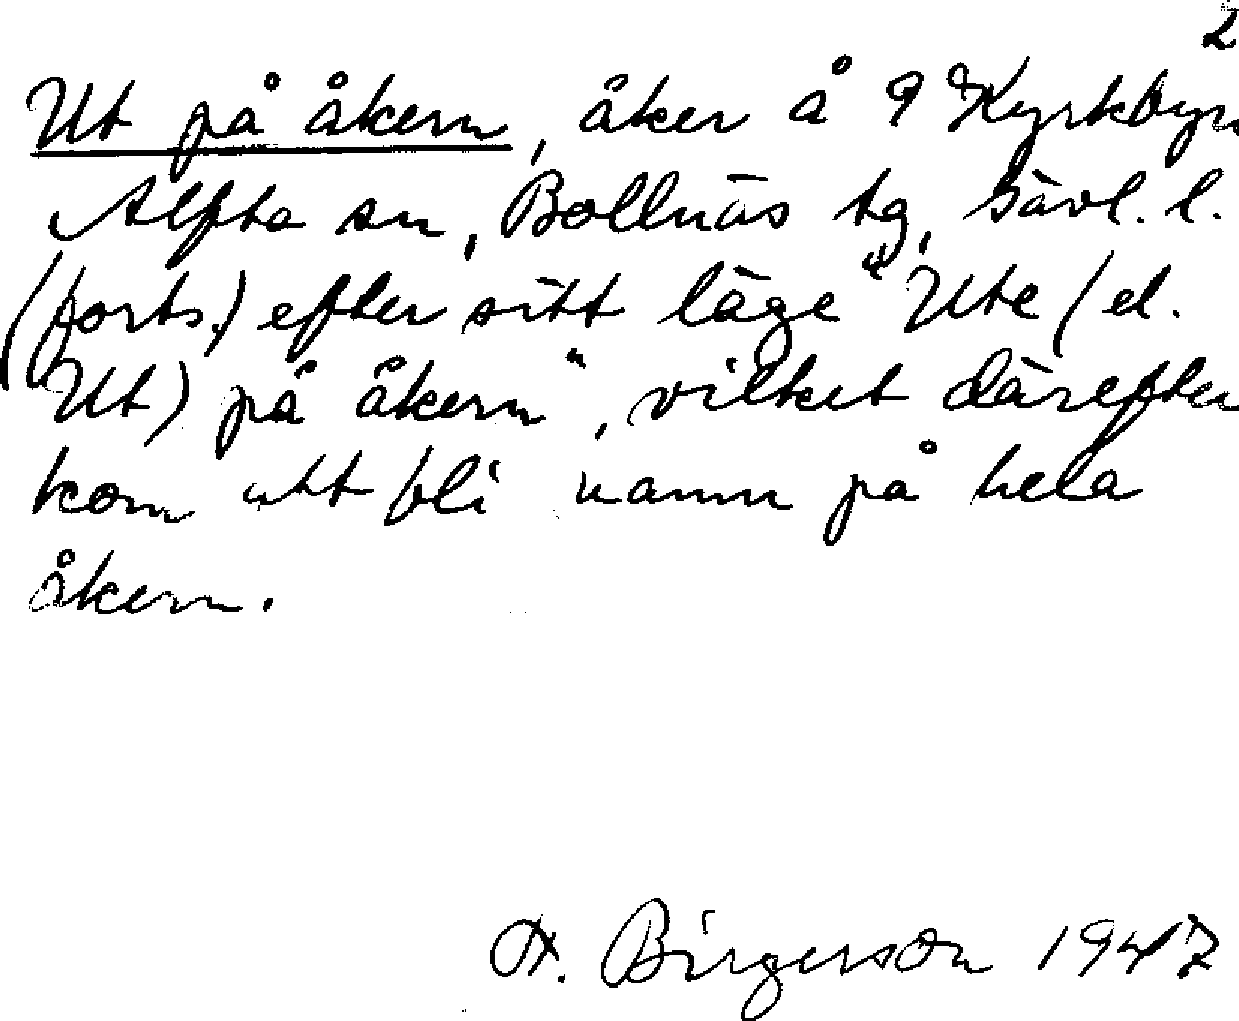 2
Ut på åkern, åker å 9 Kyrkbyn
Alfta sn, Bollnäs tg, Gävl. l.
(forts.) efter sitt läge "Ute (el.
Ut) på åkern", vilket därefter
kom att bli namn på hela
åkern.
H. Birgerson 1947